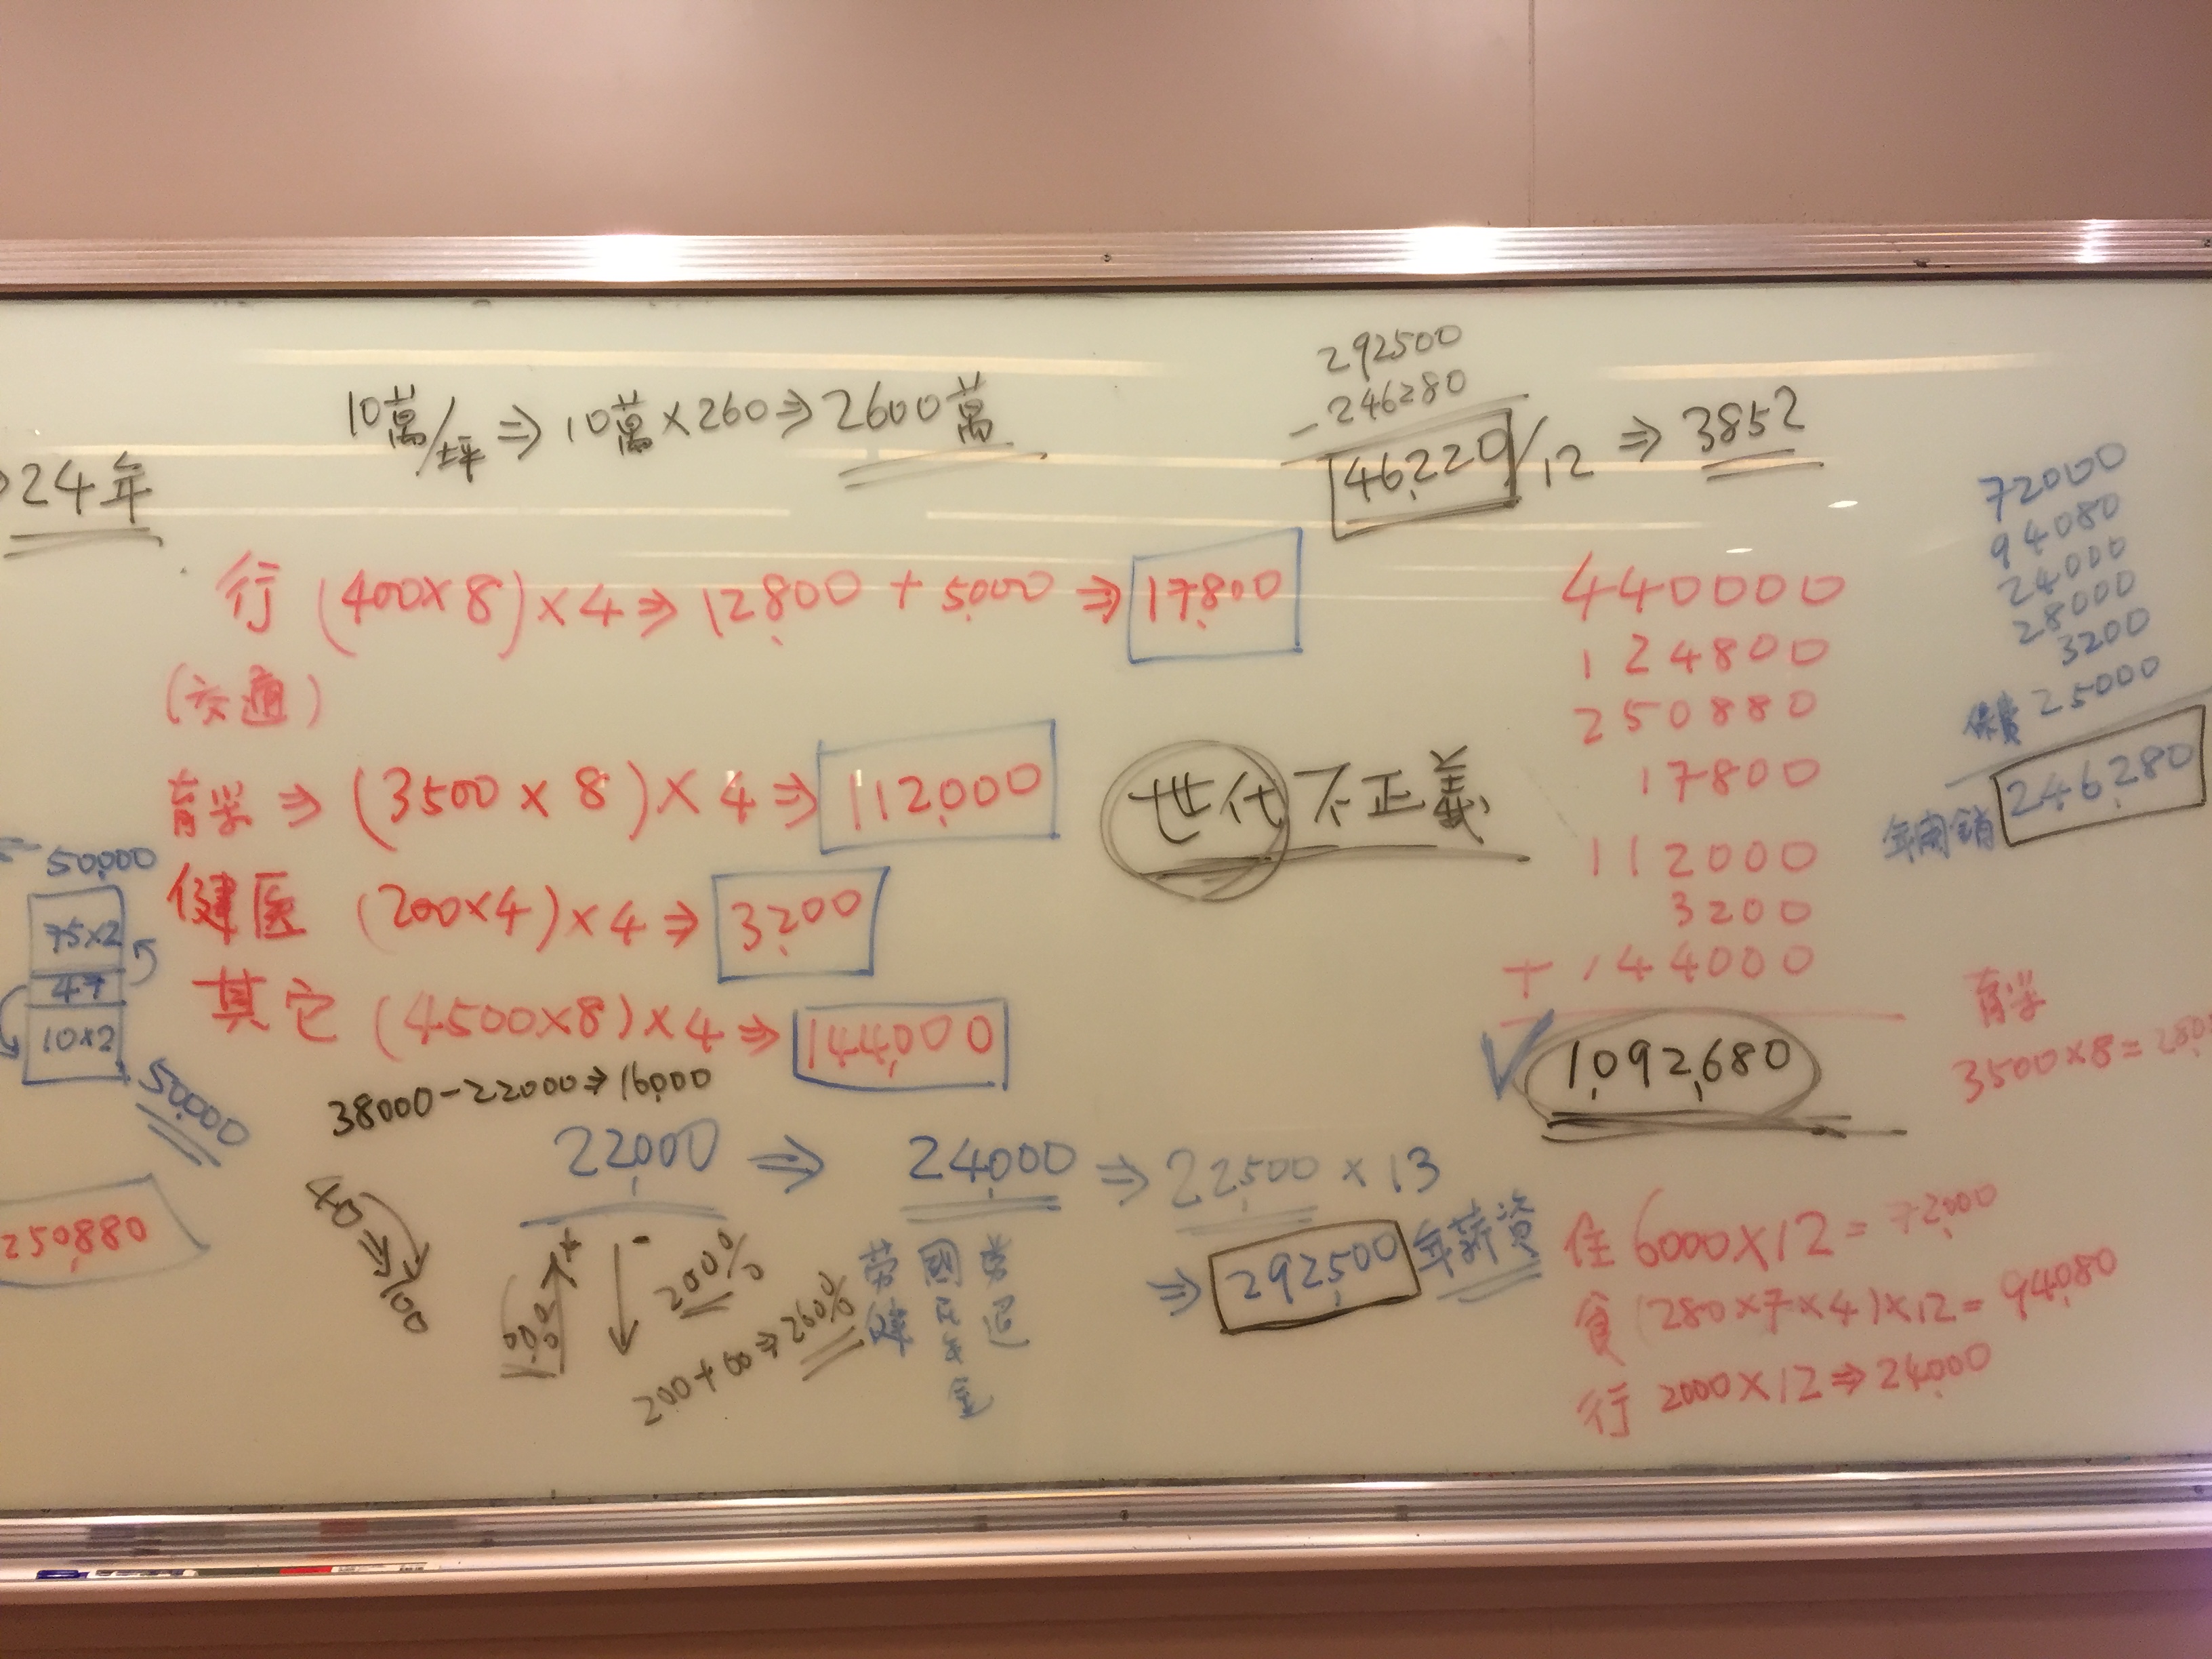 10萬/坪 ⇒ 10萬×260 ⇒ 2600萬
24年
292500
-246280
46,220/12 ⇒ 3852
行 (400×8)×4 ⇒ 12,800 + 5,000 ⇒ 17,800
(交通)
育学 ⇒ (3500×8)×4 ⇒ 112,000
健医 (200×4)×4 ⇒ 3,200
其它 (4500×8)×4 ⇒ 144,000
世代不正義
440000
124800
250880
17800
112000
3200
+ 144000
1,092,680
72000
94080
24000
28000
3200
保費 25000
年開銷 246,280
50,000
75×2
47
10×2
50,000
250,880
38000-22000⇒16,000
22,000 ⇒ 24,000 ⇒ 22,500 × 13
⇒ 292,500 年薪資
40 ⇒ 100
+
-
200%
200+60⇒260%
勞健
國民年金
勞退
育学
3500×8=
住 6000×12=72,000
食 (280×7×4)×12=94,080
行 2000×12⇒24,000